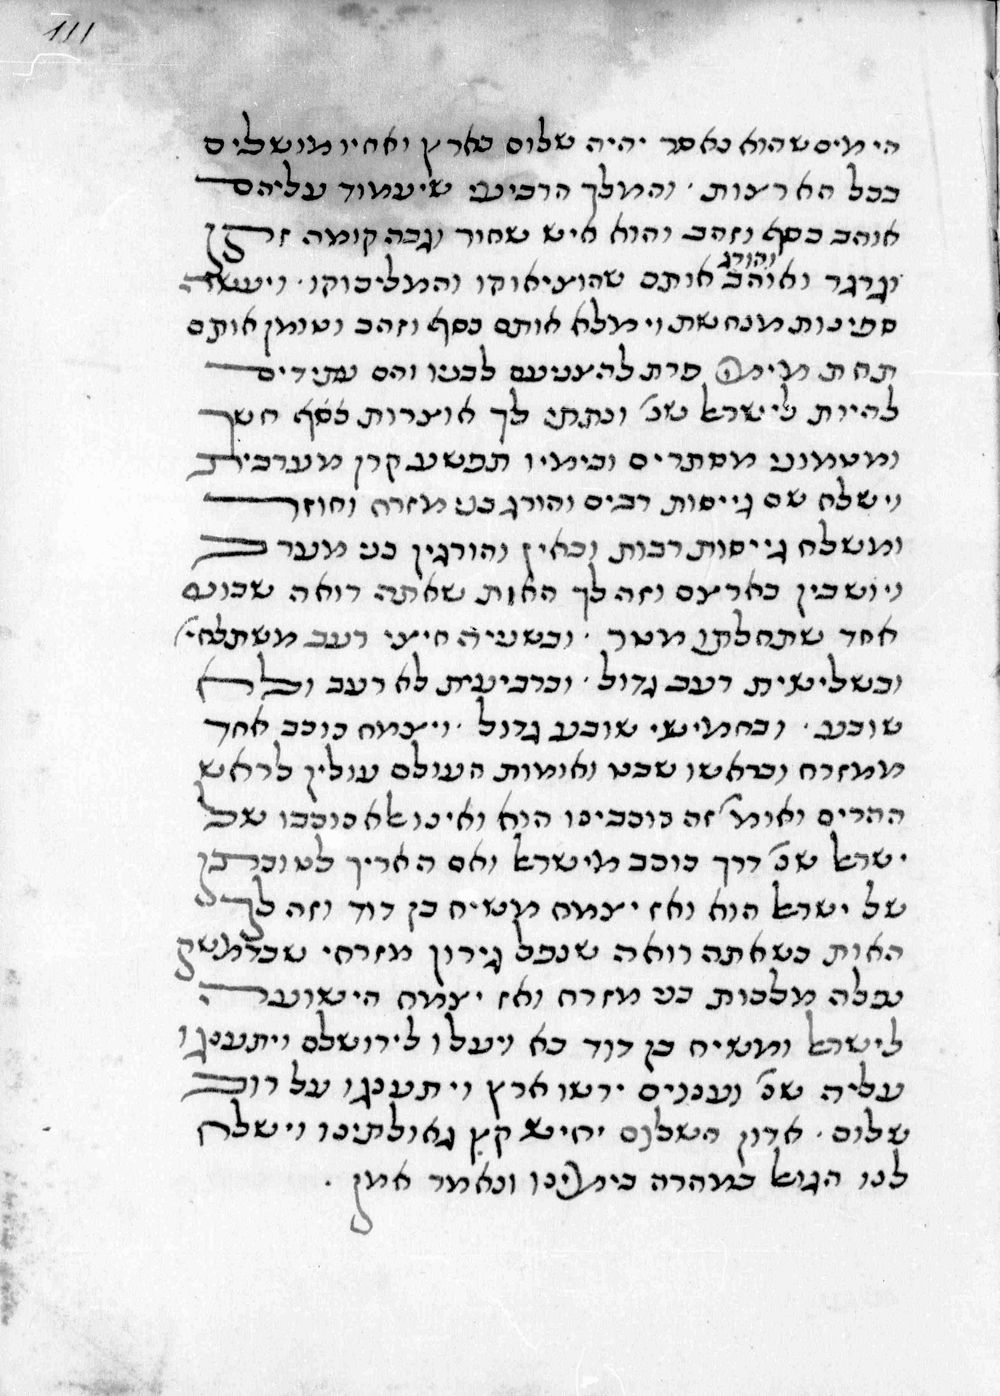 111
הימים שהוא נאסר יהיה שלום בארץ ואחיו מושלים
בכל הארצות · והמלך הרביעי שיעמוד עליהם
אוהב כסף וזהב והוא איש שחור וגבה קומה זקן
והורג
וגרגר ואוהב אותם שהוציאוהו והמליכוהו · ויעשה
ספינות מנחשת וימלא אותם כסף וזהב וטומן אותם
תחת מימי פרת להצניעם לבניו והם עתידים
להיות לישראל שנ' ונתתי לך אוצרות כסף חשך
ומטמוני מסתרים ובימיו תפשע קרן מערבית
וישלח שם גייסות רבים והורג בני מזרח וחוזר
ומשלח גייסות רבות ובאין והורגין בני מערב
ויושבין בארצם וזה לך האות שאתה רואה שבוע
אחד שתחלתו מטר · ובשנייה חיצי רעב משתלחי'
ובשלישית רעב גדול · וברביעית לא רעב ולא
שובע · ובחמישי שובע גדול · ויצמח כוכב אחד
ממזרח ובראשו שבט ואומות העולם עולין לראש
ההרים ואומ' זה כוכבינו הוא ואינו אלא כוכבו של
ישראל שנ' דרך כוכב מישראל ואם האריך לטובתן
של ישראל הוא ואז יצמח משיח בן דוד וזה לך
האות כשאתה רואה שנפל גירון מזרחי שבדמשק
נפלה מלכות בני מזרח ואז יצמח הישועה
לישראל ומשיח בן דוד בא ויעלו לירושלם ויתענגו
עליה שנ' וענוים ירשו ארץ ויתענגו על רוב
שלום · אדון השלום יחיש קץ גאולתינו וישלח
לנו הגואל במהרה בימינו ונאמר אמן ·